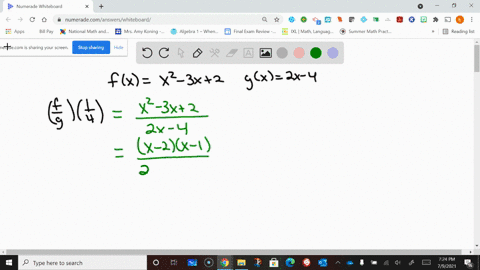 Numerade Whiteboard
numerade.com/answers/whiteboard/
Apps
Bill
National Math and...
Mrs. Amy Körning -...
Algebra 1 – Wheneve...
Final Exam Review -...
IXL | Math, Language...
Mathematics | High...
Reading list
is sharing your screen.
Stop sharing
Hide
f(x) = x²-3x+2 g(x)=2x-4
(f/g)(1/4) = (x²-3x+2)/(2x-4)
= (x-2)(x-1)/2
Type here to search
7:24 PM
7/9/2021